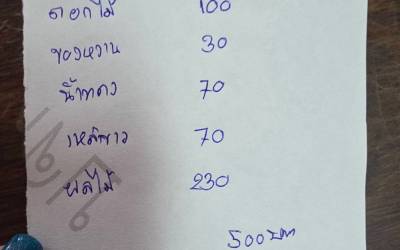 ดอกไม้ 100
ของหวาน 30
น้ำแดง 70
เหล้าขาว 70
ผลไม้ 230
500 บาท